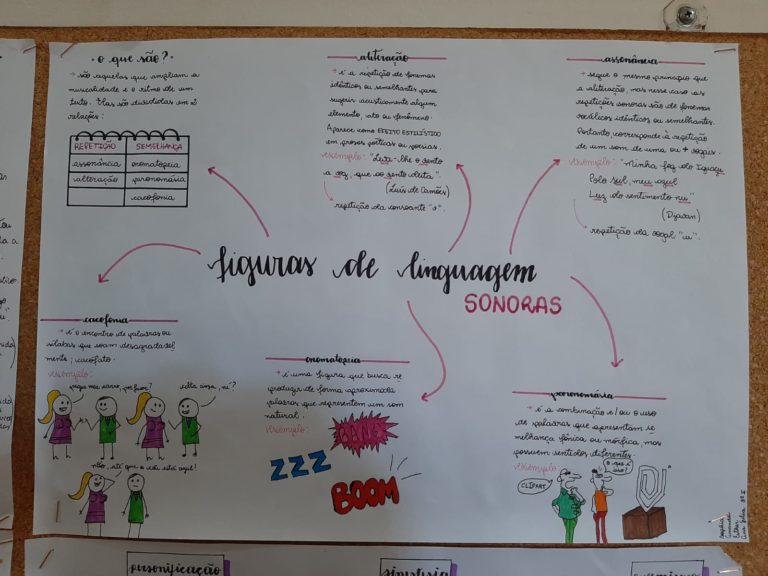 o que são?
→ são aquelas que ampliam a
musicalidade e o ritmo de um
texto. Elas são divididas em 2
relações:
REPETIÇÃO SEMELHANÇA
assonância onomatopeia
aliteração paronomásia
cacofonia
aliteração
→ é a repetição de fonemas
idênticos ou semelhantes para
sugerir acusticamente algum
elemento, ato ou fenômeno.
Aparece como EFEITO ESTILÍSTICO
em prosas poéticas ou poesias.
exemplo: "Leva-lhe o vento
a voz, que ao vento deita".
(Luís de Camões)
repetição da consoante "v".
assonância
→ segue o mesmo princípio que
a aliteração, mas nesse caso as
repetições sonoras são de fonemas
vocálicos idênticos ou semelhantes.
Portanto, corresponde à repetição
de um som de uma ou + vogais.
exemplo: "Minha foz do Iguaçu
Polo sul, meu azul
Luz do sentimento nu"
(Djavan)
repetição da vogal "u".
figuras de linguagem
SONORAS
cacofonia
→ é o encontro de palavras ou
sílabas que soam desagradavel
mente; cacofato.
exemplo:
pega meu carro, por favor?
ela tinha, né?
não, até que a está aqui!
onomatopeia
→ é uma figura que busca re
produzir de forma aproximada
palavras que representem um som
natural.
exemplo:
BANG
ZZZ
BOOM
paronomásia
→ é a combinação e/ou o uso
de palavras que apresentam se
melhança fônica ou mórfica, mas
possuem sentidos diferentes.
exemplo:
CLIPART
O que é isso?
Sophia
Ester
Ana Júlia
personificação